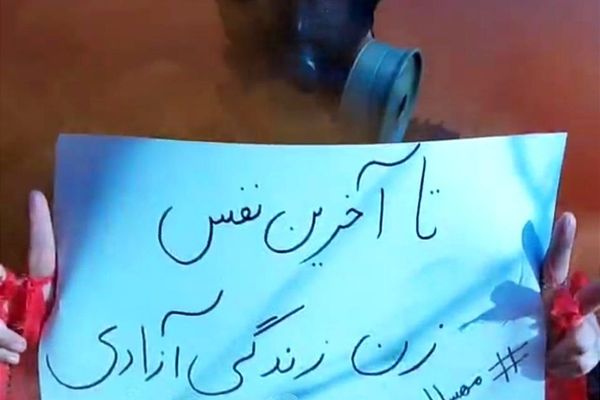 تا آخرین نفس
زن زندگی آزادی